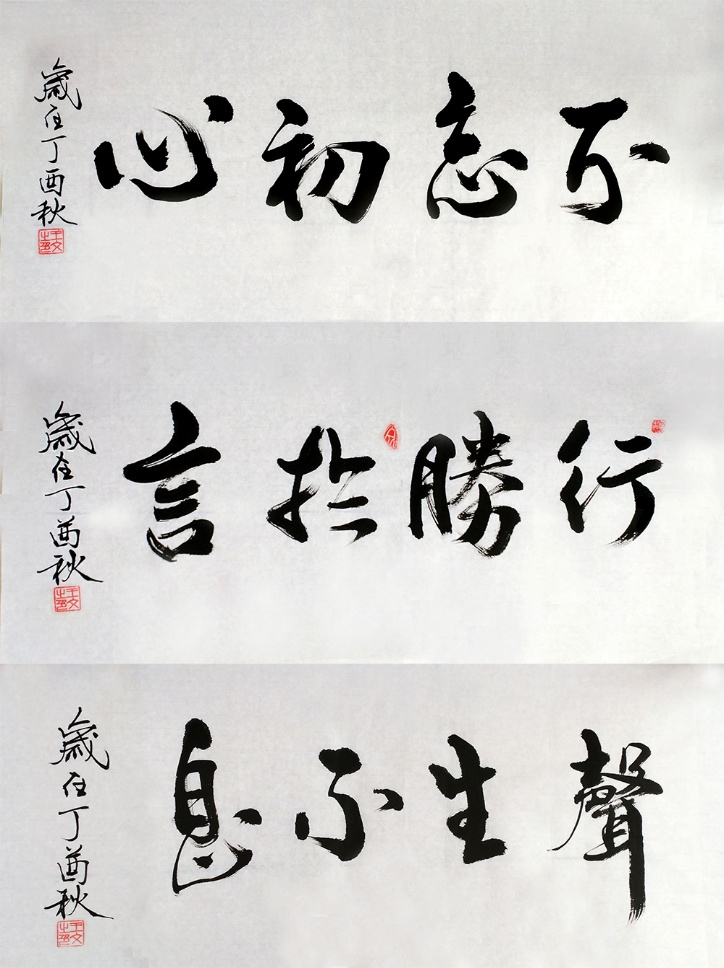 不忘初心
歲在丁酉秋
行勝於言
歲在丁酉秋
聲生不息
歲在丁酉秋